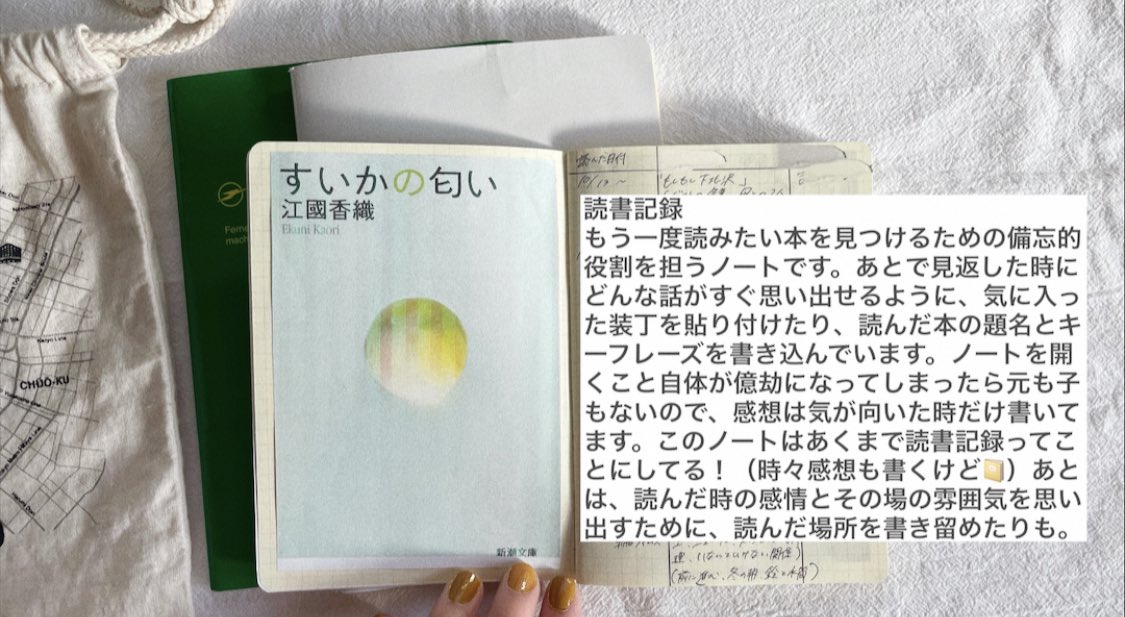 すいかの匂い
江國香織
Ekuni Kaori
新潮文庫
読んだ日付
10/12〜
「もしもし下北沢」
読書記録
もう一度読みたい本を見つけるための備忘的
役割を担うノートです。あとで見返した時に
どんな話がすぐ思い出せるように、気に入っ
た装丁を貼り付けたり、読んだ本の題名とキ
ーフレーズを書き込んでいます。ノートを開
くこと自体が億劫になってしまったら元も子
もないので、感想は気が向いた時だけ書いて
ます。このノートはあくまで読書記録ってこ
とにしてる！（時々感想も書くけど📔）あと
は、読んだ時の感情とその場の雰囲気を思い
出すために、読んだ場所を書き留めたりも。
CHŪŌ-KU